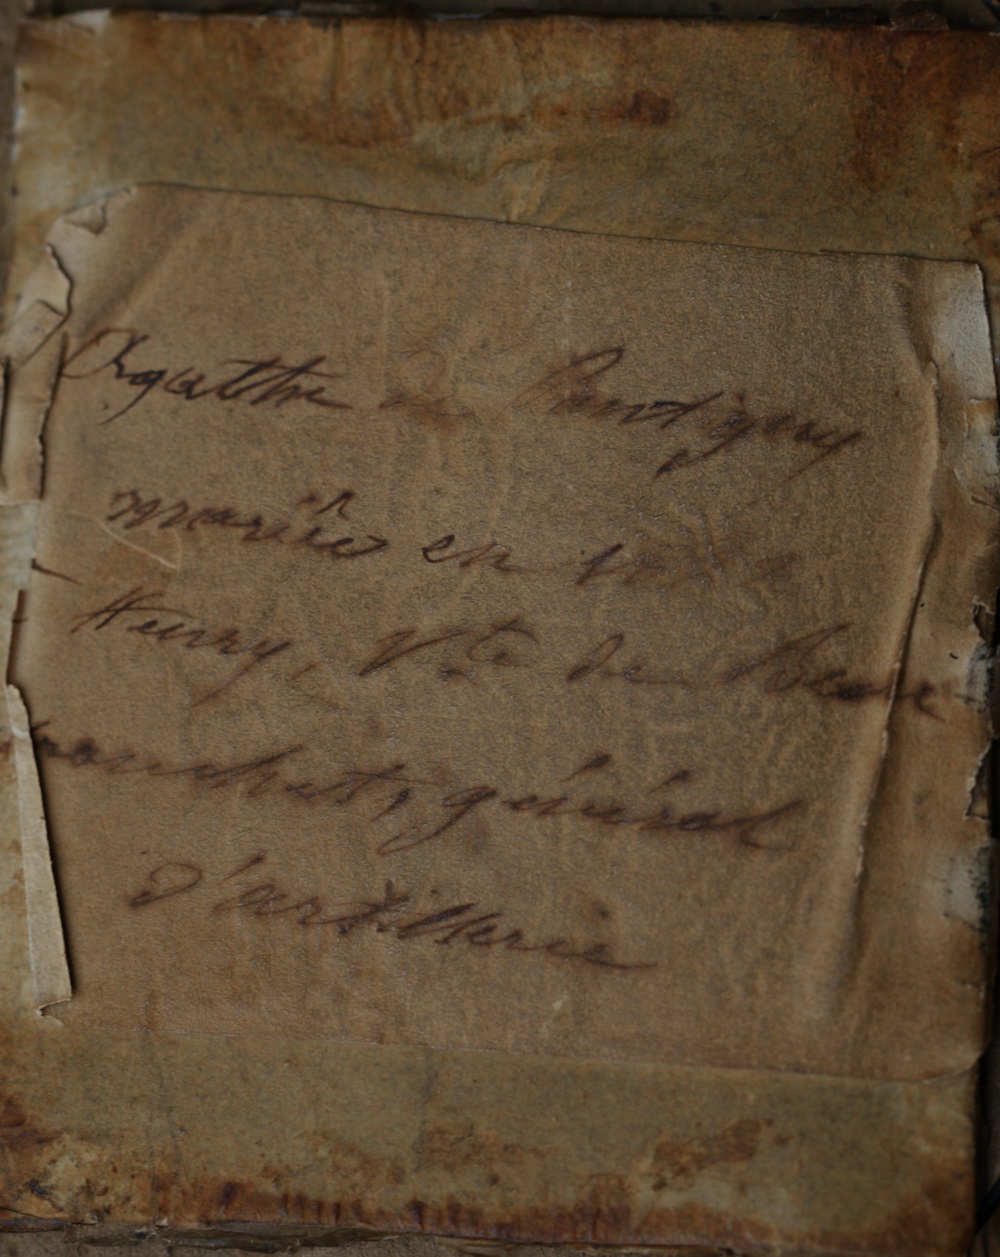 Agathe de Rantigny
mariée en
Henry, Vte de
bouchet, général
d'artillerie